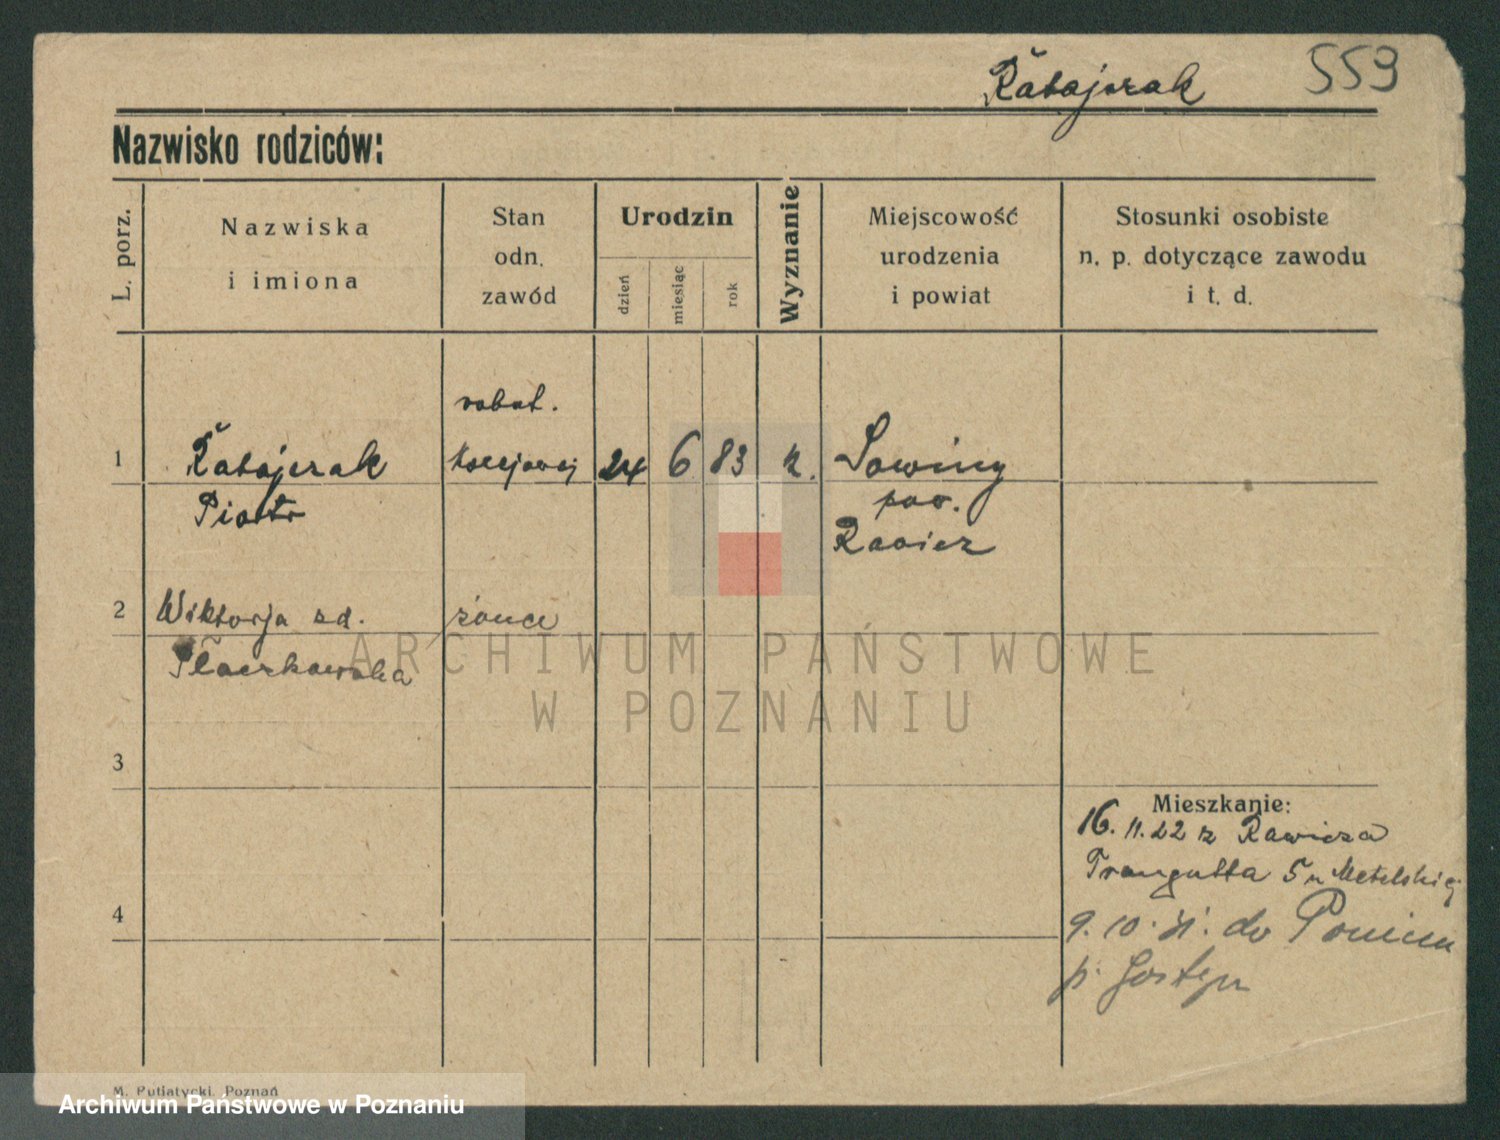 Ratajczak 559
Nazwisko rodziców:
L. porz.
Nazwiska
i imiona
Stan
odn.
zawód
Urodzin
dzień
miesiąc
rok
Wyznanie
Miejscowość
urodzenia
i powiat
Stosunki osobiste
n. p. dotyczące zawodu
i t. d.
robot.
1 Ratajczak kolejowej 24 6 83 k. Sowiny
Piotr pow.
Rawicz
2 Wiktorja zd. żonce
Płaczkowska
ARCHIWUM PAŃSTWOWE
W POZNANIU
3
Mieszkanie:
16. 11. 22 z Rawicza
Traugutta 5 u Metelskiej
4 9. 10. 31. do Poniecu
p. Gostyn
M. Putiatycki, Poznań
Archiwum Państwowe w Poznaniu